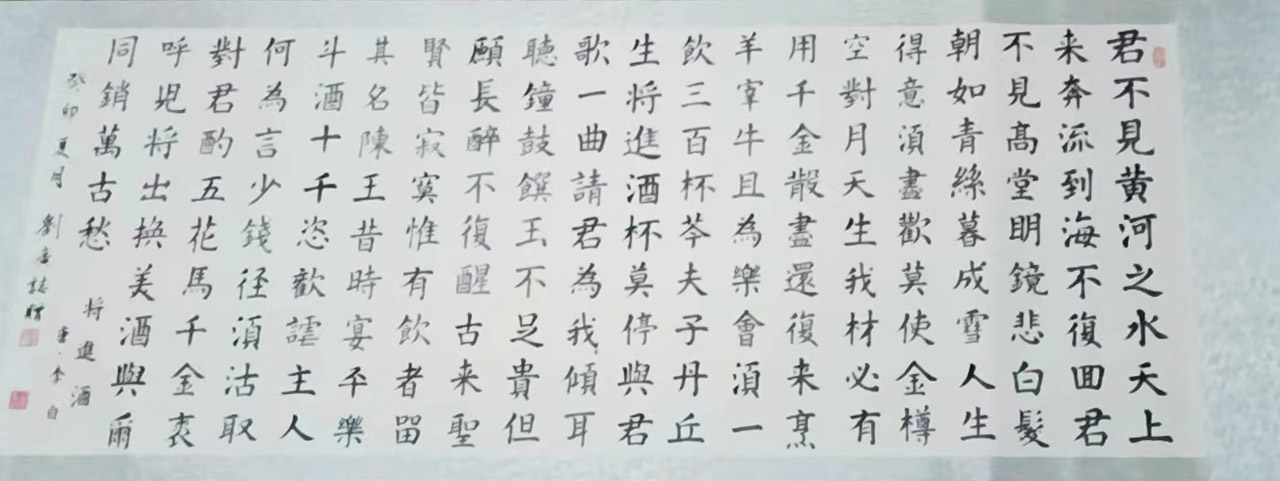 君不見黄河之水天上
来奔流到海不復囬君
不見高堂明鏡悲白髮
朝如青絲暮成雪人生
得意須盡歡莫使金樽
空對月天生我材必有
用千金散盡還復来烹
羊宰牛且為樂會須一
飲三百杯岑夫子丹丘
生将進酒杯莫停與君
歌一曲請君為我傾耳
聽鐘鼓饌玉不足貴但
願長醉不復醒古来聖
賢皆寂寞惟有飲者留
其名陳王昔時宴平樂
斗酒十千恣歡謔主人
何為言少錢径須沽取
對君酌五花馬千金裘
呼兒将出换美酒與爾
同銷萬古愁
将進酒
唐·李白
癸卯夏月劉